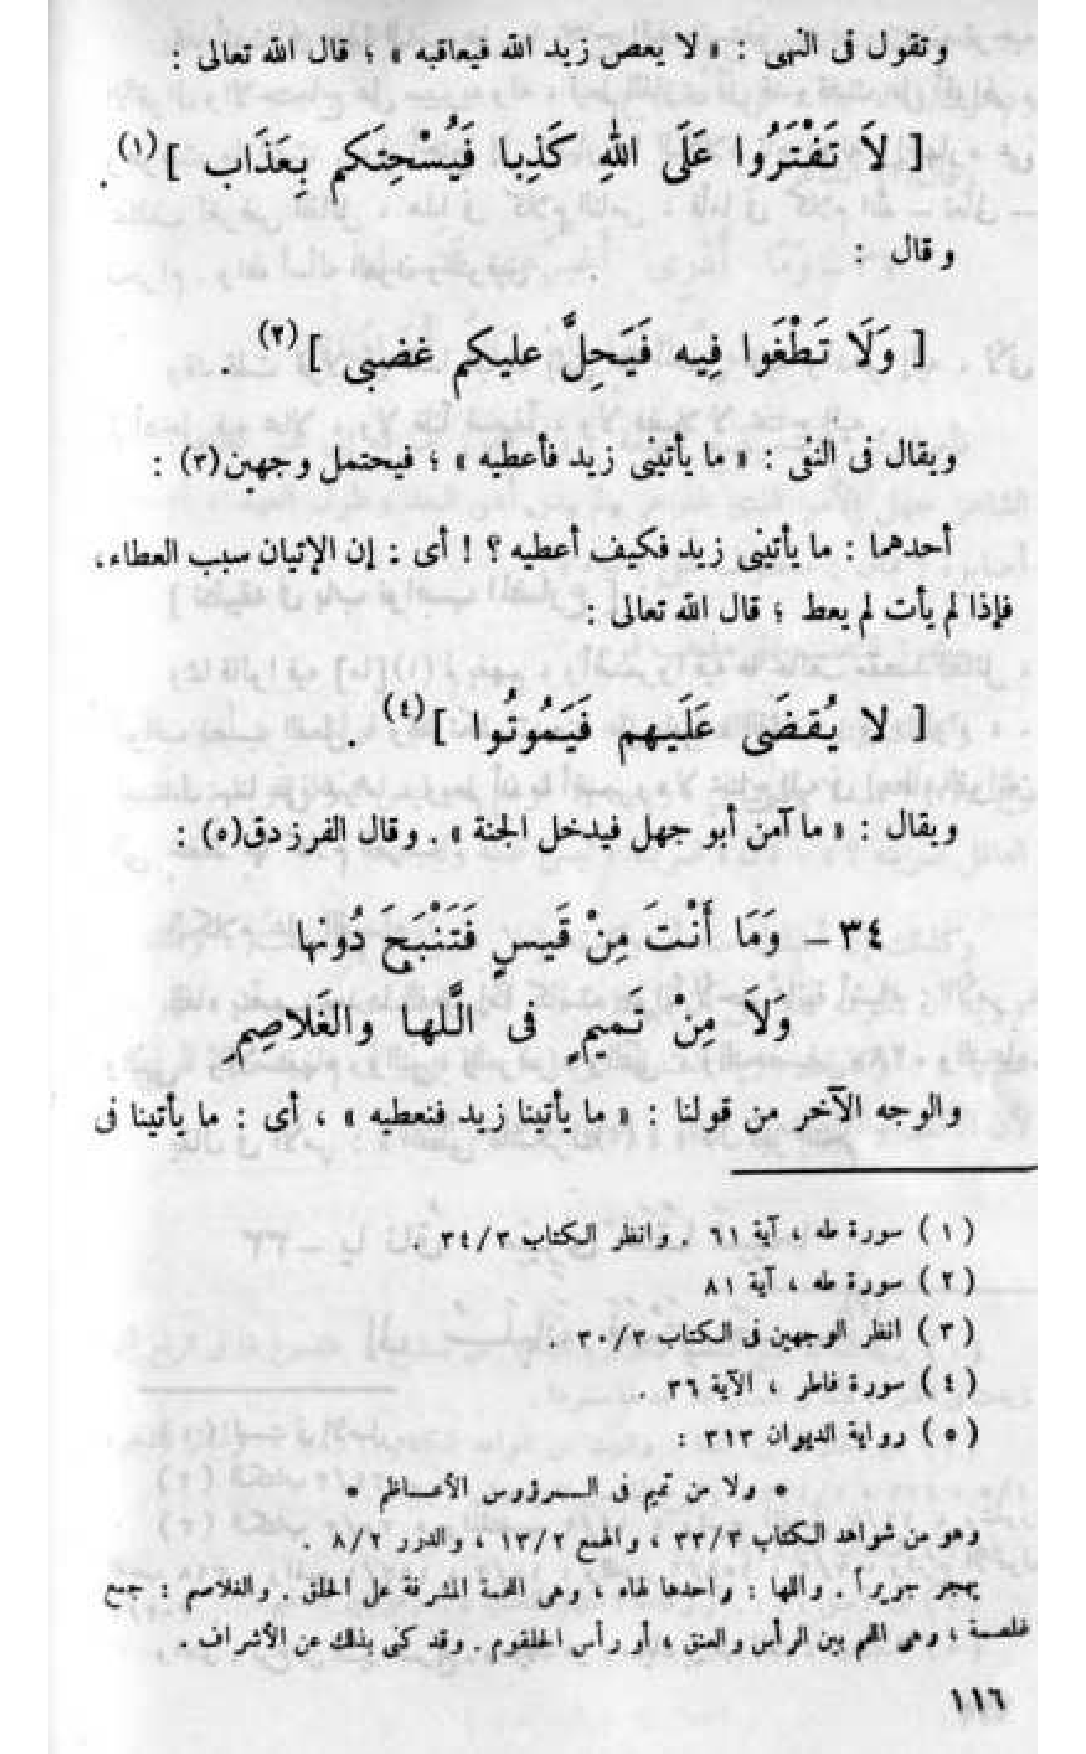 وتقول فى النهى : « لا يعص زيد الله فيعاقبه » ؛ قال الله تعالى :
[ لاَ تَفْتَرُوا عَلَى اللهِ كَذِبا فَيُسْحِتَكم بِعَذَاب ](١) .
وقال :
[ وَلَا تَطْغَوا فِيه فَيَحِلَّ عليكم غضبى ](٢) .
ويقال فى النفى : « ما يأتينى زيد فأعطيه » ؛ فيحتمل وجهين(٣) :
أحدهما : ما يأتينى زيد فكيف أعطيه ؟ ! أى : إن الإتيان سبب العطاء ،
فإذا لم يأت لم يعط ؛ قال الله تعالى :
[ لا يُقضَى عَلَيهم فَيَمُوتُوا ](٤) .
ويقال : « ما آمن أبو جهل فيدخل الجنة » . وقال الفرزدق(٥) :
٣٤ – وَمَا أَنْتَ مِنْ قَيسٍ فَتَنْبَحَ دُونها
وَلاَ مِنْ تَميمٍ فى الَّلها والغَلاصِمِ
والوجه الآخر من قولنا : « ما يأتينا زيد فنعطيه » ، أى : ما يأتينا فى
( ١ ) سورة طه ، آية ٦١ . وانظر الكتاب ٣/٣٤ .
( ٢ ) سورة طه ، آية ٨١
( ٣ ) انظر الوجهين فى الكتاب ٣/٣٠ .
( ٤ ) سورة فاطر ، الآية ٣٦ .
( ٥ ) رواية الديوان ٣١٣ :
* ولا من تميم فى الـرؤوس الأعـاظم *
وهو من شواهد الكتاب ٣/٣٣ ، والهمع ٢/١٣ ، والدرر ٢/٨ .
يهجو جريراً . واللها : واحدها لهاه ، وهى اللحمة المشرفة على الحلق . والغلاصم : جمع
غلصمة ، وهى اللحم بين الرأس والعنق ، أو رأس الحلقوم . وقد كنى بذلك عن الأشراف .
١١٦